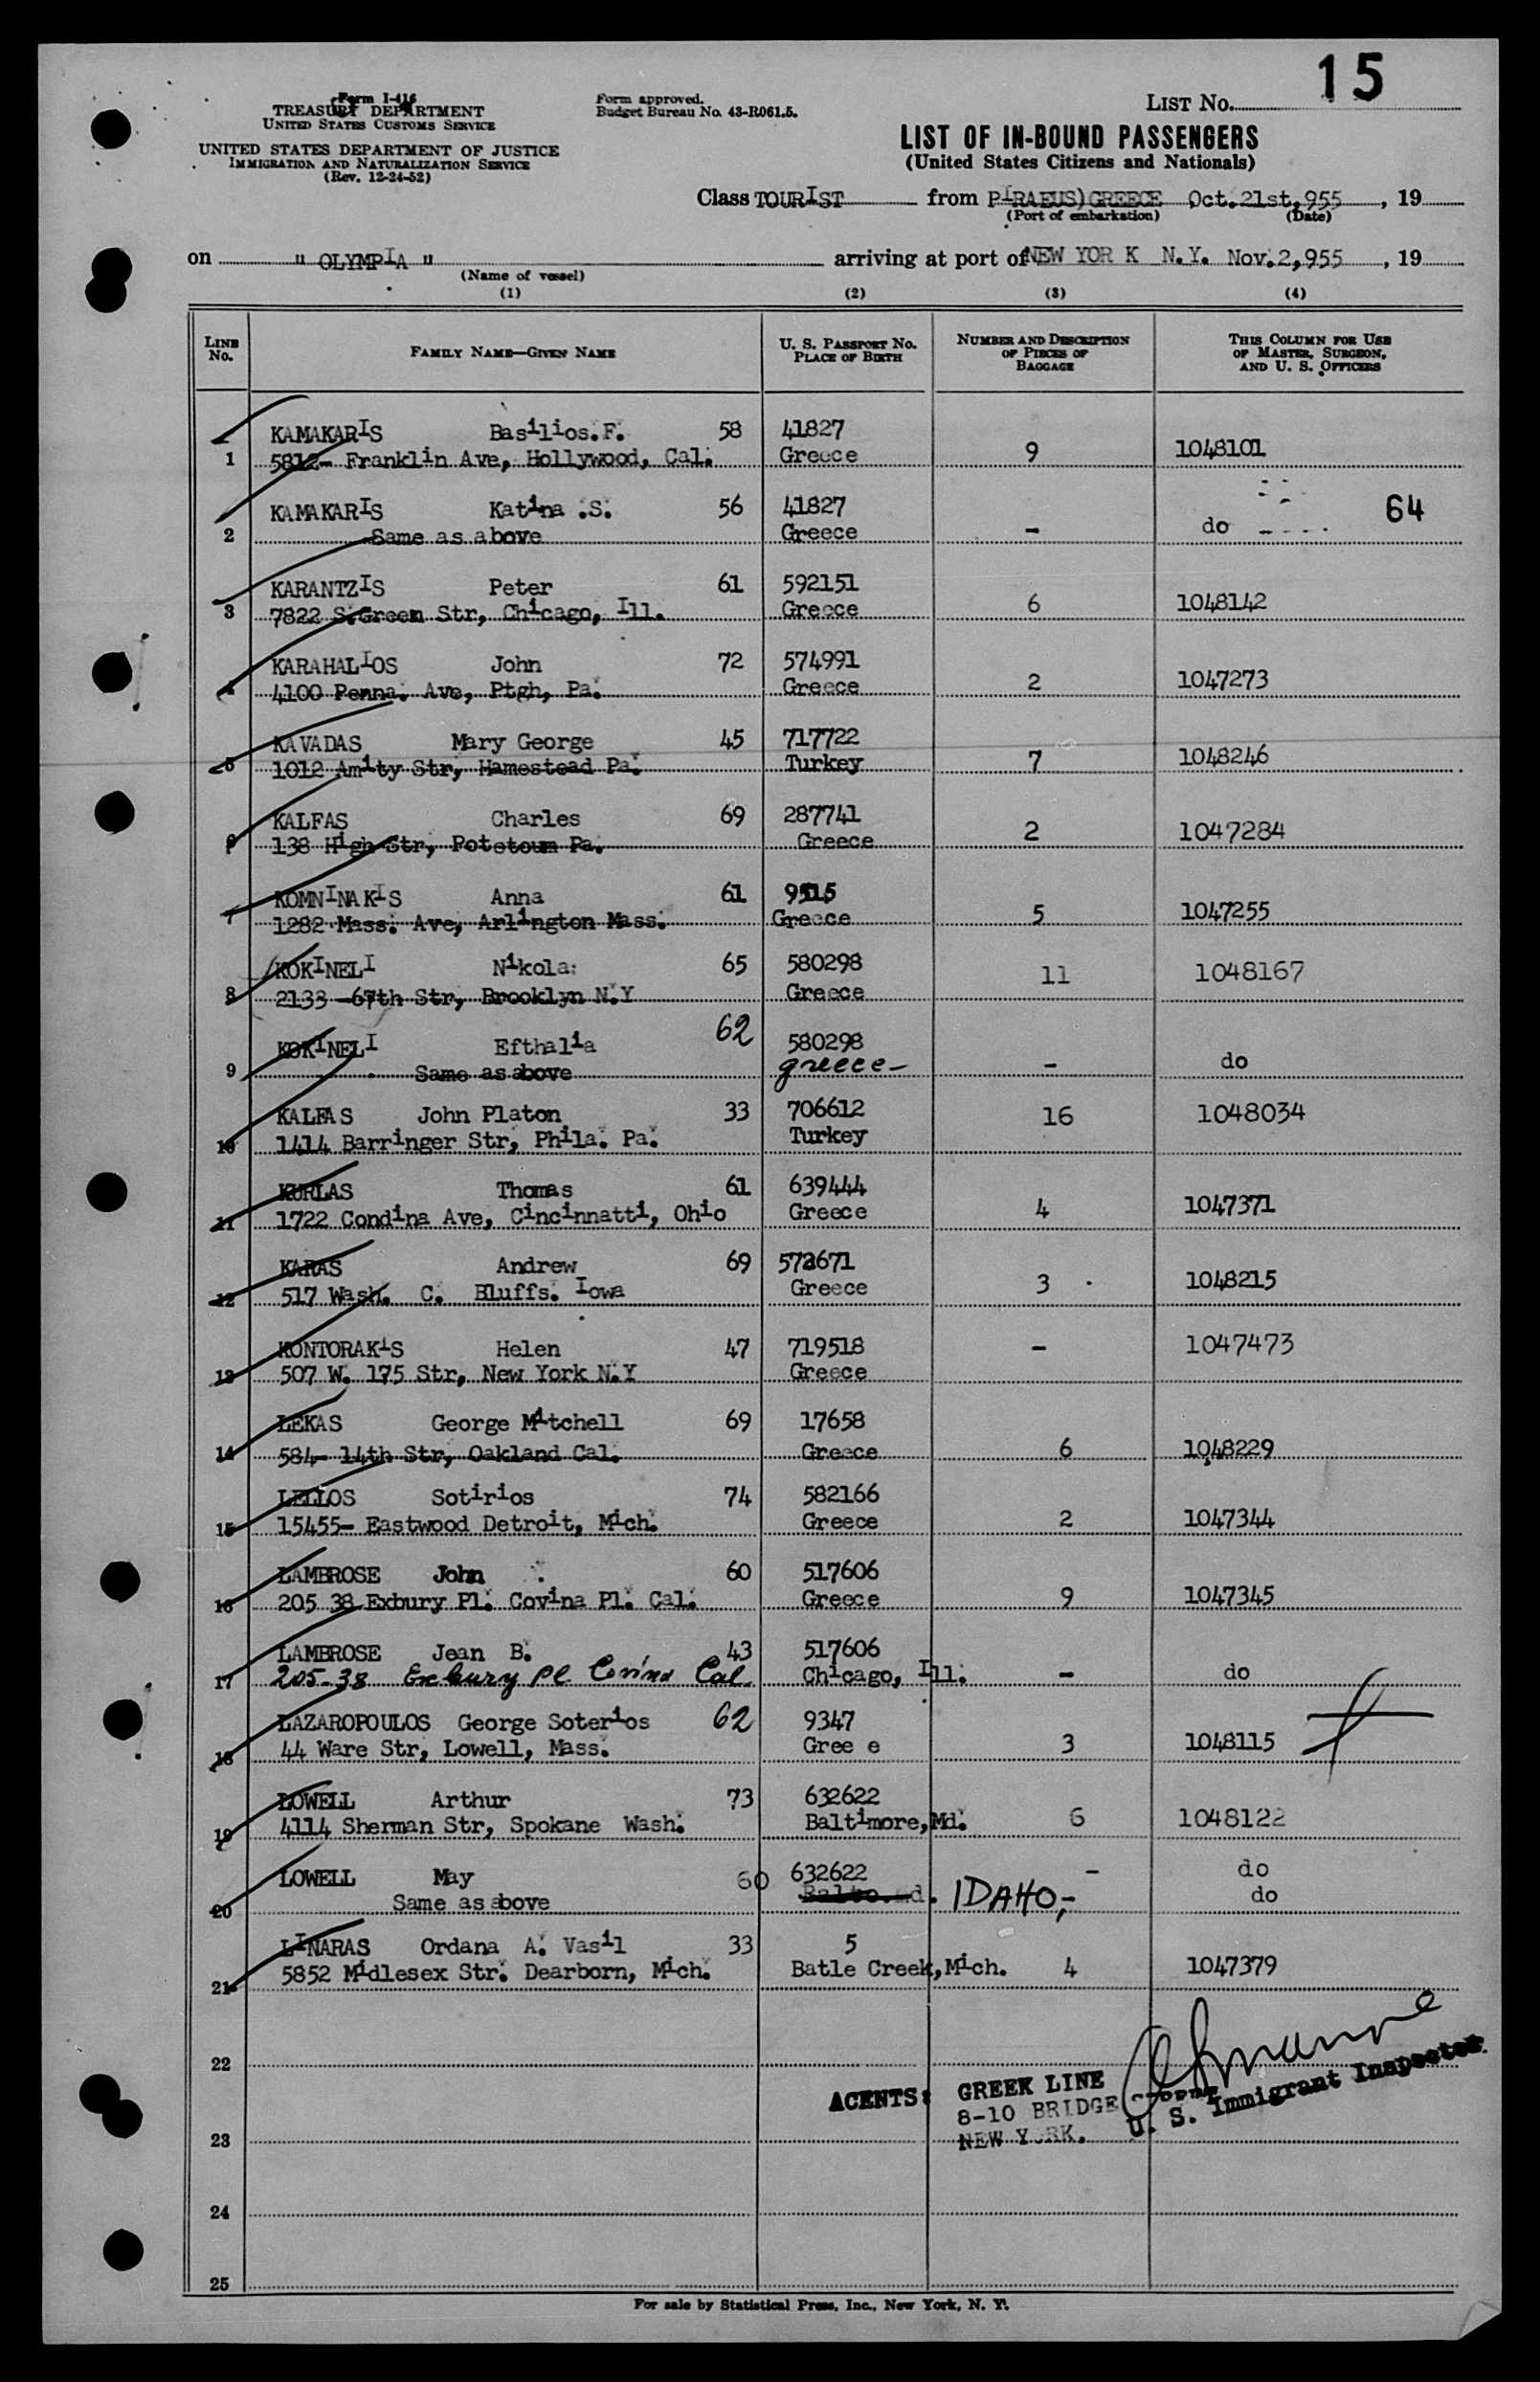 15
LIST NO.
Form I-416
TREASURY DEPARTMENT
UNITED STATES CUSTOMS SERVICE
UNITED STATES DEPARTMENT OF JUSTICE
IMMIGRATION AND NATURALIZATION SERVICE
(Rev. 12-24-52)
Form approved.
Budget Bureau No. 43-R061.5.
LIST OF IN-BOUND PASSENGERS
(United States Citizens and Nationals)
Class TOURIST from PIRAEUS)GREECE Oct.21st,955, 19
(Port of embarkation) (Date)
on " OLYMPIA " arriving at port of NEW YOR K N.Y. Nov.2,955, 19
(Name of vessel)
(1) (2) (3) (4)
LINE No. FAMILY NAME—GIVEN NAME U. S. PASSPORT NO. PLACE OF BIRTH NUMBER AND DESCRIPTION OF PIECES OF BAGGAGE THIS COLUMN FOR USE OF MASTER, SURGEON, AND U. S. OFFICERS
KAMAKARIS Basilios.F. 58 41827
1 5812- Franklin Ave, Hollywood, Cal. Greece 9 1048101
KAMAKARIS Katina .S. 56 41827 64
2 Same as above Greece - do
KARANTZIS Peter 61 592151
3 7822 S.Green Str, Chicago, Ill. Greece 6 1048142
KARAHALIOS John 72 574991
4 4100 Penna. Ave, Ptgh, Pa. Greece 2 1047273
KAVADAS Mary George 45 717722
5 1012 Amity Str, Hamestead Pa. Turkey 7 1048246
KALFAS Charles 69 287741
6 138 High Str, Pa. Greece 2 1047284
KOMNINAKIS Anna 61 9515
7 1282 Mass. Ave, Arlington Mass. Greece 5 1047255
KOKINELI Nikola: 65 580298
8 2133 -67th Str, Brooklyn N.Y Greece 11 1048167
KOKINELI Efthalia 62 580298
9 Same as above greece - - do
KALFAS John Platon 33 706612
10 1414 Barringer Str, Phila. Pa. Turkey 16 1048034
KURLAS Thomas 61 639444
11 1722 Condina Ave, Cincinnatti, Ohio Greece 4 1047371
KARAS Andrew 69
12 517 Wash. C. Bluffs. Iowa Greece 3 1048215
KONTORAKIS Helen 47 719518
13 507 W. 175 Str, New York N.Y Greece - 1047473
LEKAS George Mitchell 69 17658
14 584- 14th Str, Oakland Cal. Greece 6 1048229
LELLOS Sotirios 74 582166
15 15455- Eastwood Detroit, Mich. Greece 2 1047344
LAMBROSE John 60 517606
16 205 38 Exbury Pl. Covina Pl. Cal. Greece 9 1047345
LAMBROSE Jean B. 43 517606
17 205-38 Exbury Pl Covina Cal. Chicago, Ill. - do
LAZAROPOULOS George Soterios 62 9347
18 44 Ware Str, Lowell, Mass. Gree e 3 1048115
LOWELL Arthur 73 632622
19 4114 Sherman Str, Spokane Wash. Baltimore,Md. 6 1048122
LOWELL May 60 632622 - do
20 Same as above IDAHO,- do
LINARAS Ordana A. Vasil 33 5
21 5852 Midlesex Str. Dearborn, Mich. Batle Creek,Mich. 4 1047379
22
AGENTS: GREEK LINE
8-10 BRIDGE
NEW YORK.
U. S. Immigrant Inspector
23
24
25
For sale by Statistical Press, Inc., New York, N. Y.